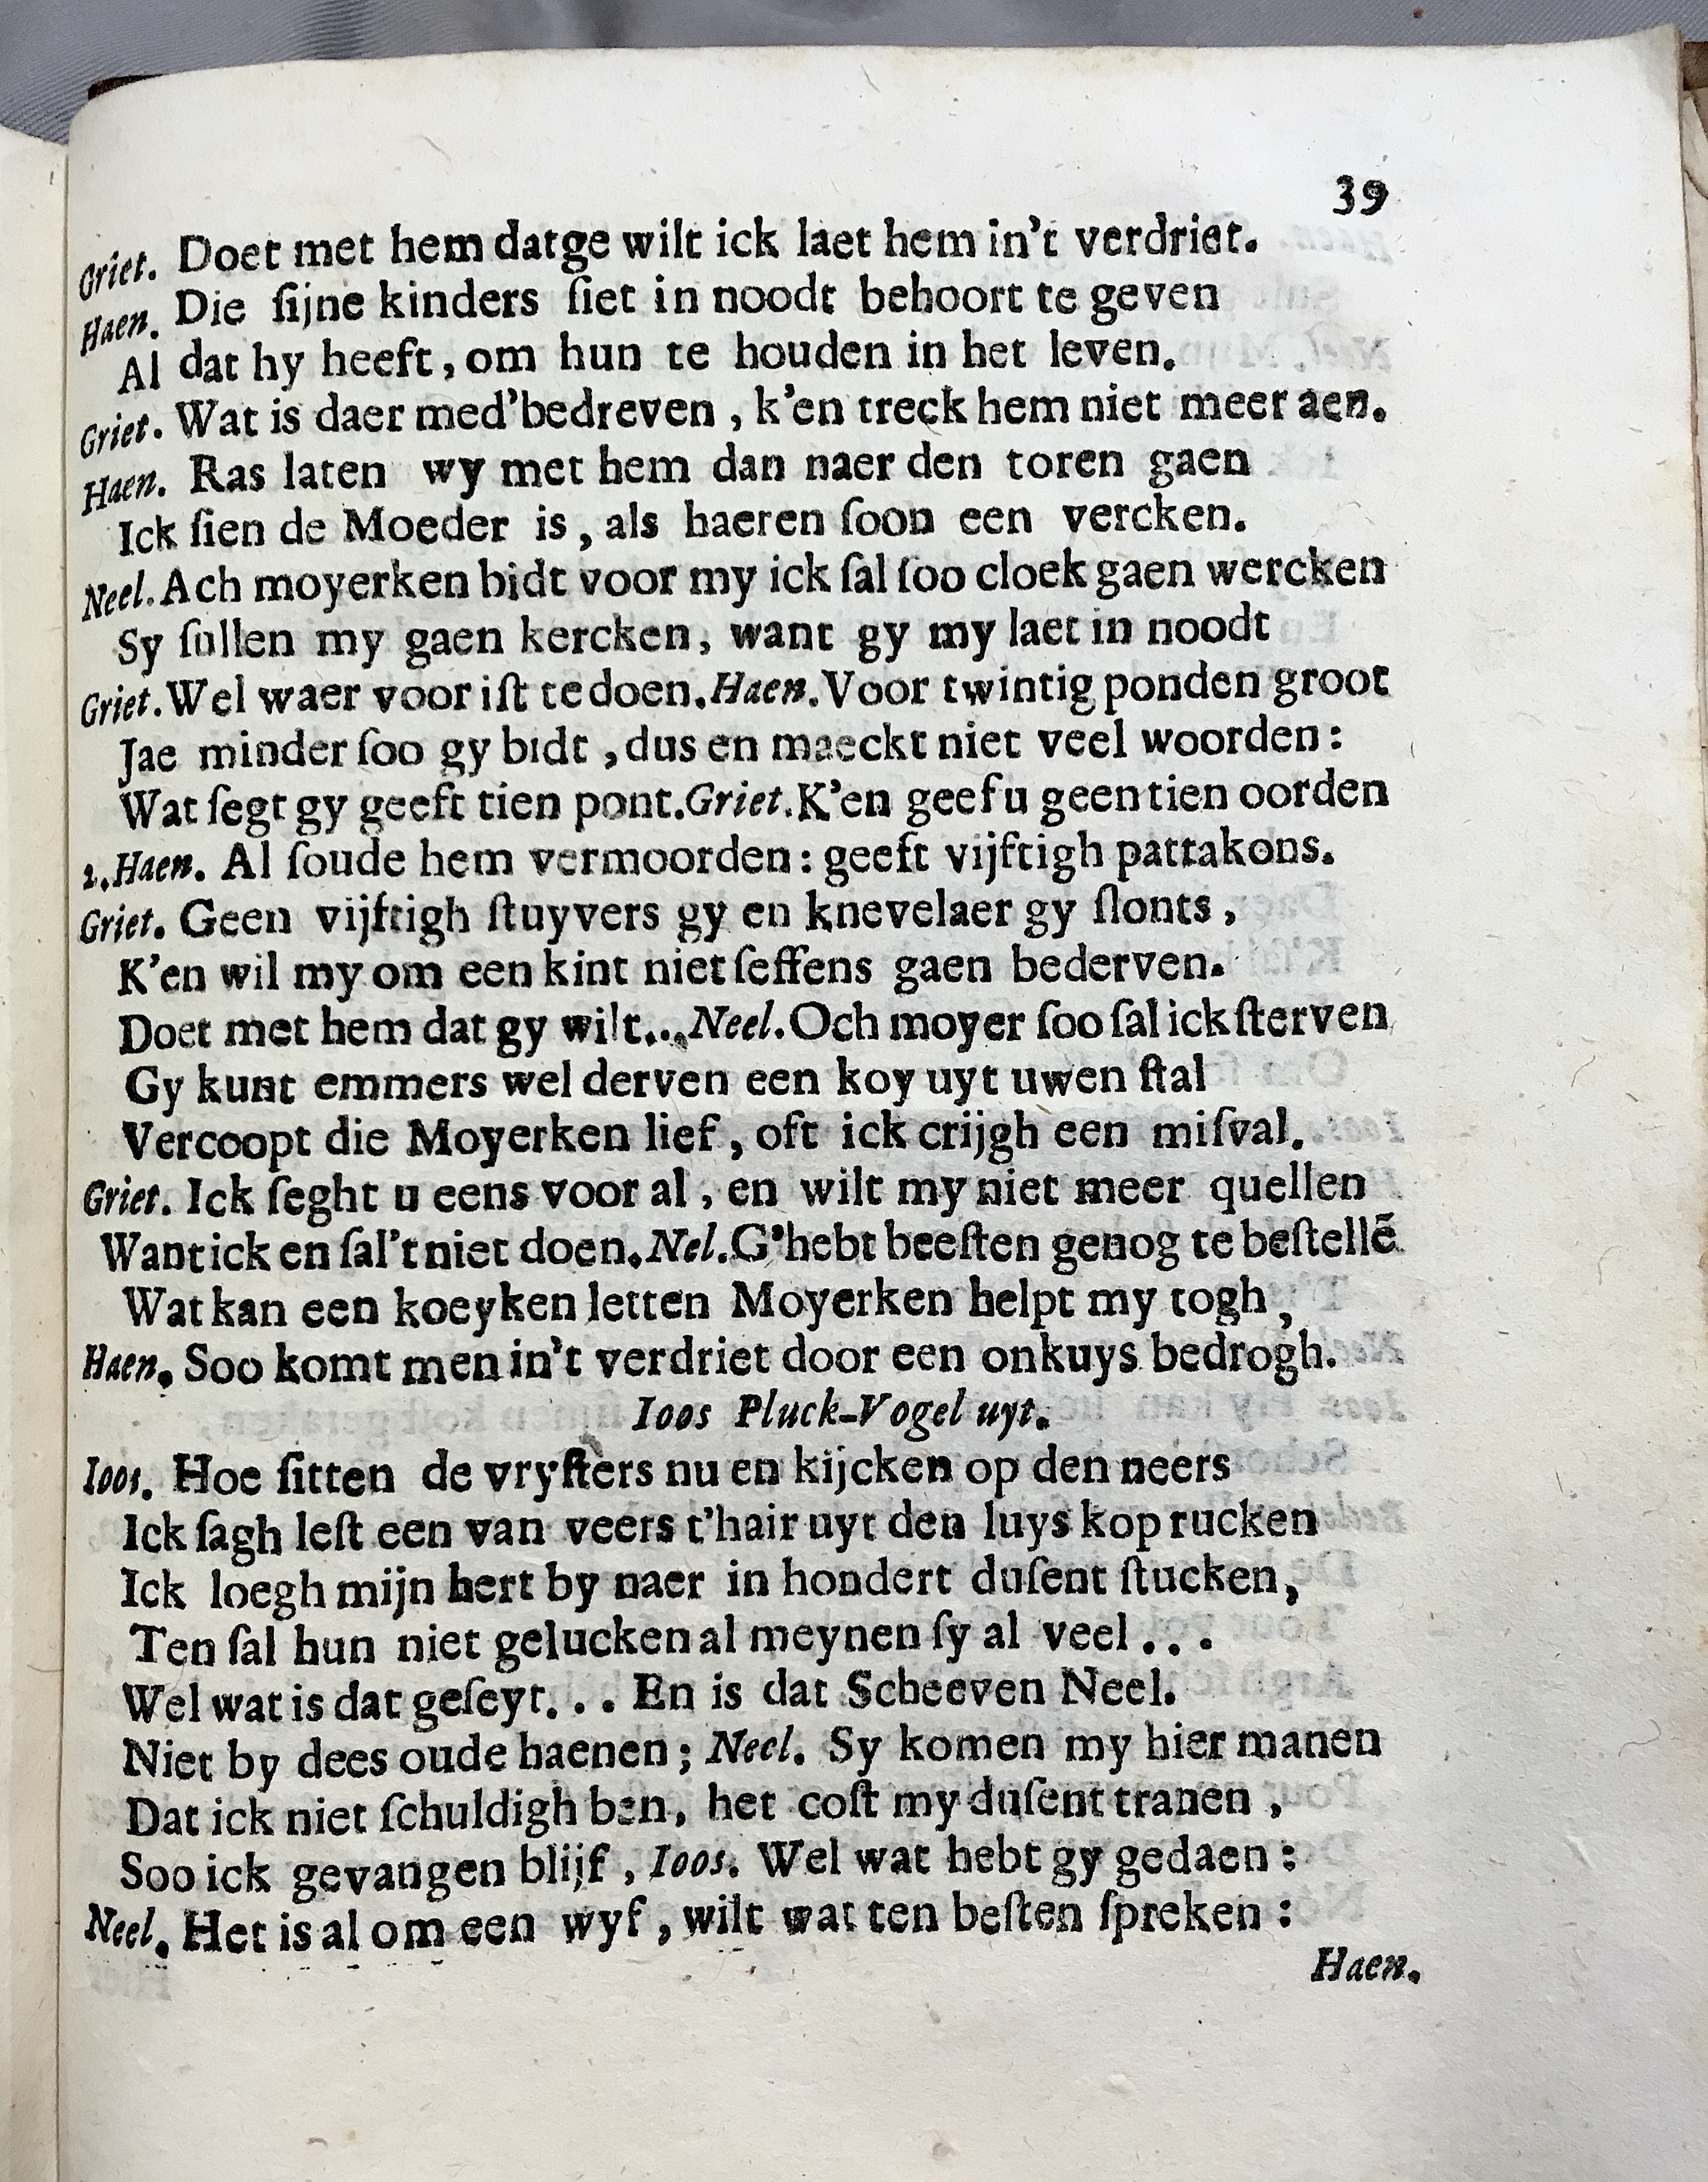 39
Griet. Doet met hem datge wilt ick laet hem in't verdriet.
Haen. Die ſijne kinders ſiet in noodt behoort te geven
Al dat hy heeft, om hun te houden in het leven.
Griet. Wat is daer med'bedreven, k'en treck hem niet meer aen.
Haen. Ras laten wy met hem dan naer den toren gaen
Ick ſien de Moeder is, als haeren ſoon een vercken.
Neel. Ach moyerken bidt voor my ick ſal ſoo cloek gaen wercken
Sy ſullen my gaen kercken, want gy my laet in noodt
Griet. Wel waer voor iſt te doen. Haen. Voor twintig ponden groot
Jae minder ſoo gy bidt, dus en maeckt niet veel woorden:
Wat ſegt gy geeft tien pont. Griet. K'en geef u geen tien oorden
2. Haen. Al ſoude hem vermoorden: geeft vijftigh pattakons.
Griet. Geen vijftigh ſtuyvers gy en knevelaer gy ſlonts,
K'en wil my om een kint niet ſeffens gaen bederven.
Doet met hem dat gy wilt... Neel. Och moyer ſoo ſal ick ſterven
Gy kunt emmers wel derven een koy uyt uwen ſtal
Vercoopt die Moyerken lief, oft ick crijgh een miſval.
Griet. Ick ſeght u eens voor al, en wilt my niet meer quellen
Want ick en ſal't niet doen. Nel. G'hebt beeſten genog te beſtellē
Wat kan een koeyken letten Moyerken helpt my togh,
Haen. Soo komt men in't verdriet door een onkuys bedrogh.
Ioos Pluck-Vogel uyt.
Ioos. Hoe ſitten de vryſters nu en kijcken op den neers
Ick ſagh leſt een van veers t'hair uyt den luys kop rucken
Ick loegh mijn hert by naer in hondert duſent ſtucken,
Ten ſal hun niet gelucken al meynen ſy al veel...
Wel wat is dat geſeyt... En is dat Scheeven Neel.
Niet by dees oude haenen; Neel. Sy komen my hier manen
Dat ick niet ſchuldigh ben, het coſt my duſent tranen,
Soo ick gevangen blijf, Ioos. Wel wat hebt gy gedaen:
Neel. Het is al om een wyf, wilt wat ten beſten ſpreken:
Haen.